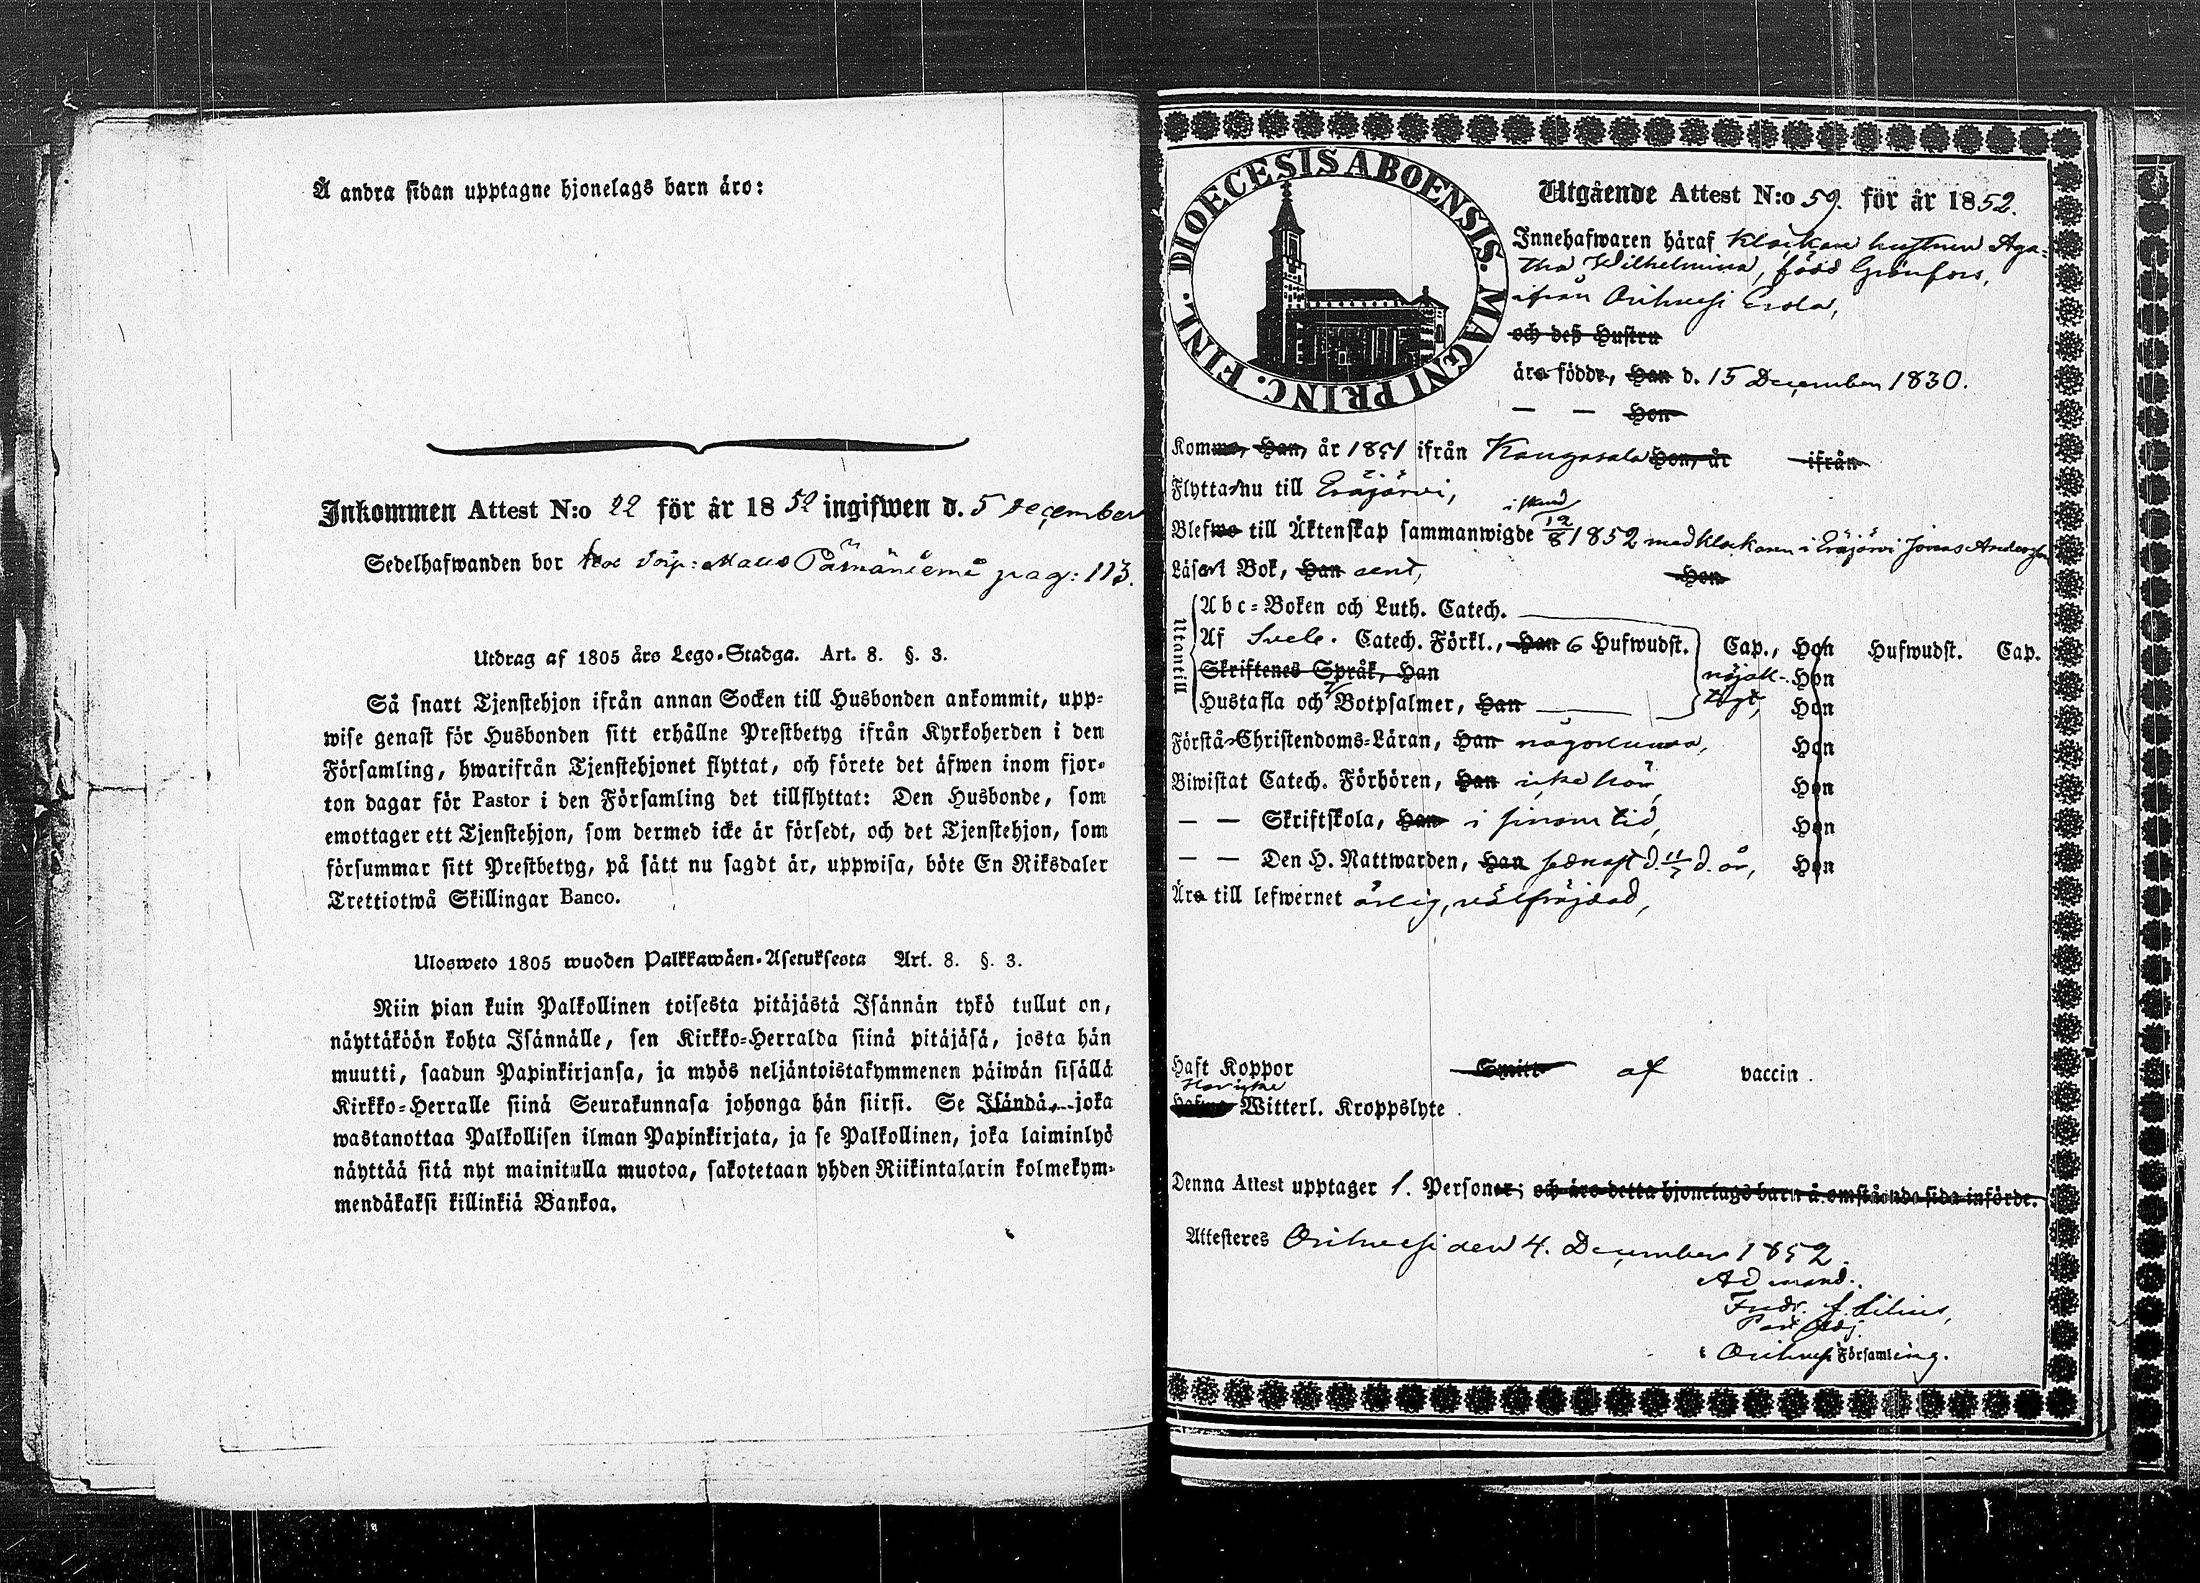 Å andra sidan upptagne hjonelags barn äro:
Inkommen Attest N:o 22 för år 1852 ingifwen d. 5 December
Sedelhafwanden bor torp: pag: 113.
Utdrag af 1805 års Lego-Stadga. Art. 8. §. 3.
Så snart Tjenstehjon ifrån annan Socken till Husbonden ankommit, upp-
wise genast för Husbonden sitt erhållne Prestbetyg ifrån Kyrkoherden i den
Församling, hwarifrån Tjenstehjonet flyttat, och förete det äfwen inom fjor-
ton dagar för Pastor i den Församling det tillflyttat: Den Husbonde, som
emottager ett Tjenstehjon, som dermed icke är försedt, och det Tjenstehjon, som
försummar sitt Prestbetyg, på sätt nu sagdt är, uppwisa, böte En Riksdaler
Trettiotwå Skillingar Banco.
Ulosweto 1805 wuoden Palkkawäen-Asetuksesta Art. 8. §. 3.
Niin pian kuin Palkollinen toisesta pitäjästä Isännän tykö tullut on,
näyttäköön kohta Isännälle, sen Kirkko-Herralda siinä pitäjäsä, josta hän
muutti, saadun Papinkirjansa, ja myös neljäntoistakymmenen päiwän sisällä
Kirkko-Herralle siinä Seurakunnasa johonga hän siirsi. Se Isändä, joka
wastanottaa Palkollisen ilman Papinkirjata, ja se Palkollinen, joka laiminlyö
näyttää sitä nyt mainitulla muotoa, sakotetaan yhden Riikintalarin kolmekym-
mendäkaksi killinkiä Bankoa.
DIOECESIS ABOENSIS. MAGNI PRINC. FINL.
Utgående Attest N:o 59. för år 1852.
Innehafwaren häraf Klockare hustrun Aga-
tha Wilhelmina, född Grönfors,
ifrån Orihvesi Erola,
och deß Hustru
äro födde, Han d. 15 December 1830.
— — Hon
Kommo, Han, år 1851 ifrån Kangasala Hon, år ifrån
Flytta nu till Eräjärvi,
i stånd
Blefwo till Äktenskap sammanwigde 12/8 1852 med klockaren i Eräjärvi Jonas
Läsa i Bok, Han rent, Hon
Utantill
Abc-Boken och Luth. Catech.
Af Sveb. Catech. Förkl., Han 6 Hufwudst. Cap., Hon Hufwudst. Cap.
Skriftenes Språk, Han nöjak- Hon
Hustafla och 7 Botpsalmer, Han tigt, Hon
Förstå Christendoms-Läran, Han någorlunda, Hon
Biwistat Catech. Förhören, Han icke här, Hon
— — Skriftskola, Han i sinom tid, Hon
— — Den H. Nattwarden, Han senast d. 11/7 d. år, Hon
Äro till lefwernet ärlig, välfräjdad,
Haft Koppor Smitt af vaccin.
Har icke
Hafwa Witterl. Kroppslyte.
Denna Attest upptager 1. Personer; och äro detta hjonelags barn å omstående sida införde.
Attesteres Orihvesi den 4. December 1852.
Ad mand:
Fredr. F. Lilius,
Past. Adj.
i Orihvesi Församling.